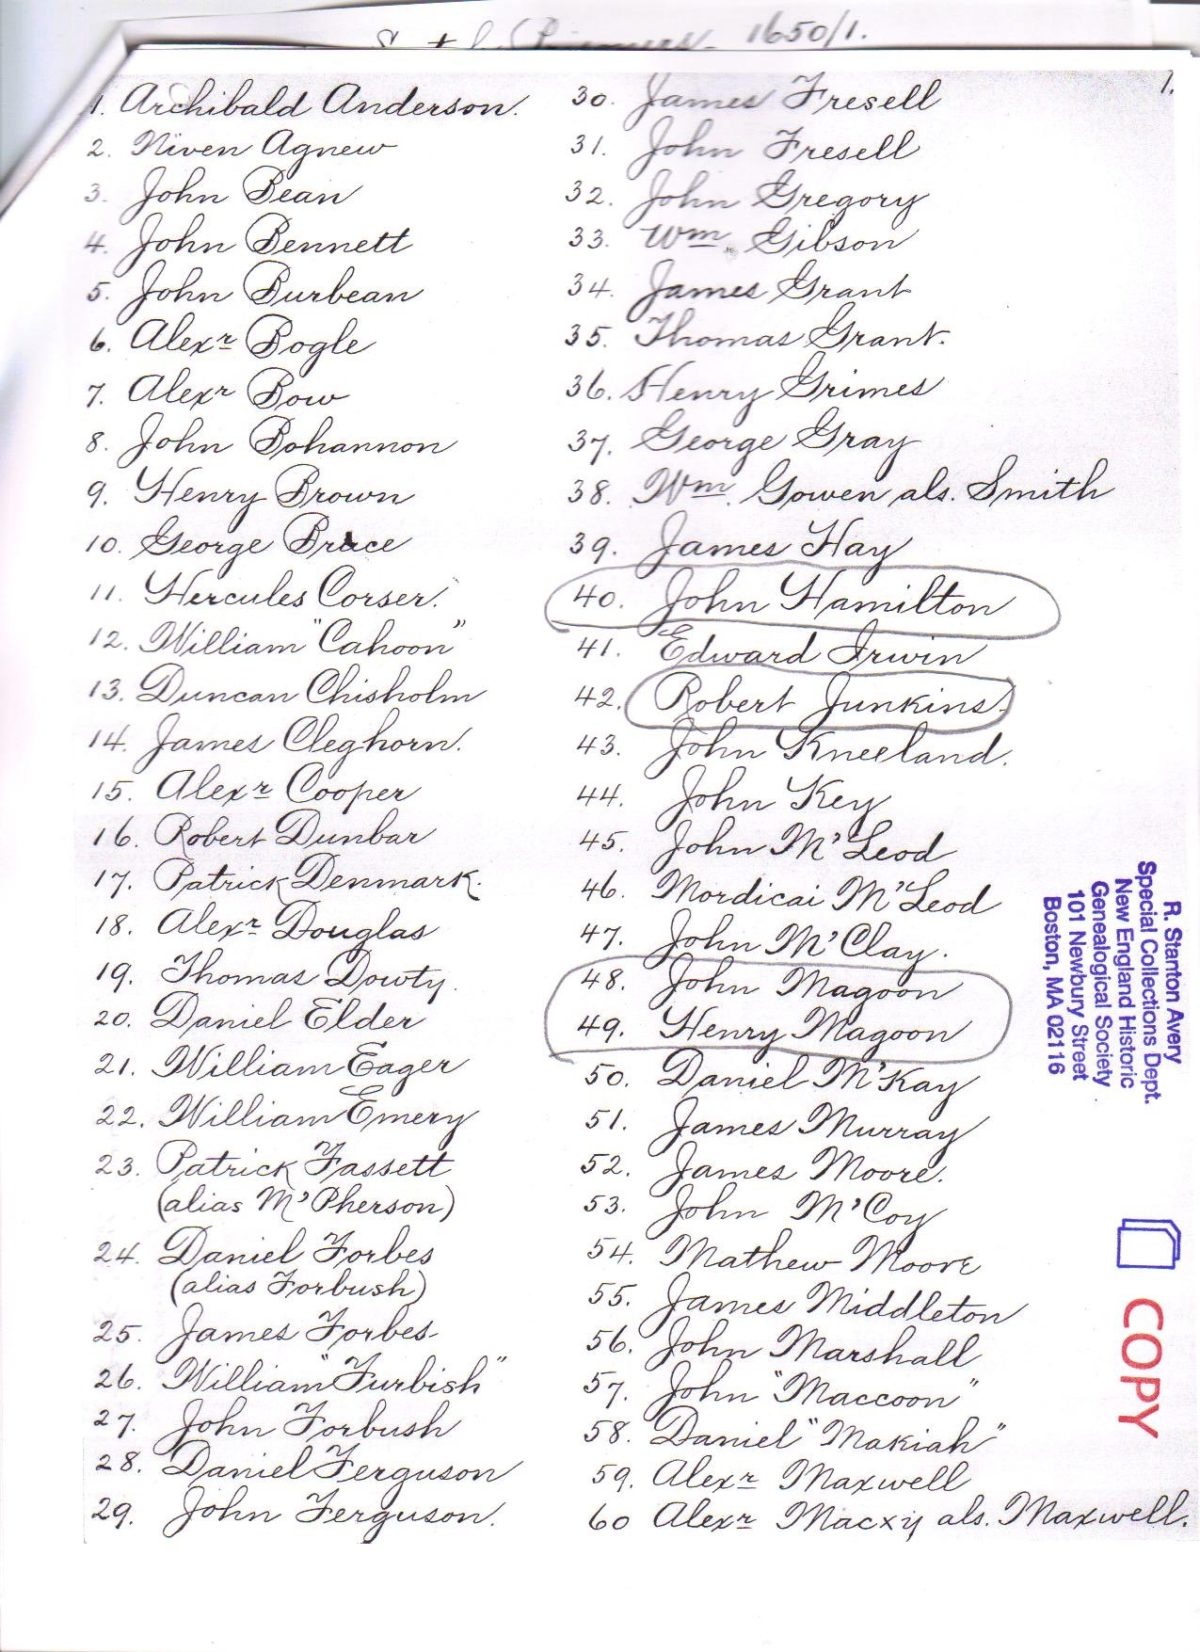 1650/1.
1.
1. Archibald Anderson.
2. Niven Agnew
3. John Bean
4. John Bennett
5. John Burbean
6. Alexr Bogle
7. Alexr Bow
8. John Bohannon
9. Henry Brown
10. George Bruce
11. Hercules Corser.
12. William "Cahoon"
13. Duncan Chisholm
14. James Cleghorn.
15. Alexr Cooper
16. Robert Dunbar
17. Patrick Denmark.
18. Alexr Douglas
19. Thomas Dowty.
20. Daniel Elder
21. William Eager
22. William Emery
23. Patrick Fassett
(alias M'Pherson)
24. Daniel Forbes
(alias Forbush)
25. James Forbes
26. William "Furbish"
27. John Forbush
28. Daniel Ferguson
29. John Ferguson.
30. James Fresell
31. John Fresell
32. John Gregory
33. Wm. Gibson
34. James Grant
35. Thomas Grant.
36. Henry Grimes
37. George Gray
38. Wm. Gowen als. Smith
39. James Hay
40. John Hamilton
41. Edward Irwin
42. Robert Junkins.
43. John Kneeland.
44. John Key
45. John M'Leod
46. Mordicai M'Leod
47. John M'Clay.
48. John Magoon
49. Henry Magoon
50. Daniel M'Kay
51. James Murray
52. James Moore.
53. John M'Coy
54. Mathew Moore
55. James Middleton
56. John Marshall
57. John "Maccoon"
58. Daniel "Makiah"
59. Alexr Maxwell
60 Alexr Macxy als. Maxwell.
R. Stanton Avery
Special Collections Dept.
New England Historic
Genealogical Society
101 Newbury Street
Boston, MA 02116
COPY